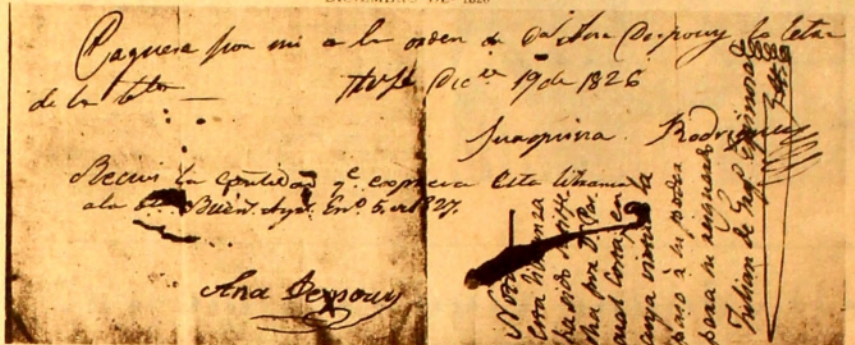 DICIEMBRE DE 1826
Paguese por mi a la orden de Da. Ana Despouy la letra
de la bta Dice. 19 de 1826
Juaquina Rodriguez
Recivi la cantidad qe. expresa esta libranza
a la Buens. Ayrs. Eno. 5 de 1827.
Ana Despouy
Nota
Esta libranza
ha sido satisfe-
cha por Dn. Pas-
qual Costa, en
cuya virtud la
paso à su poder
para su resguardo
Julian de Grega. Espinosa